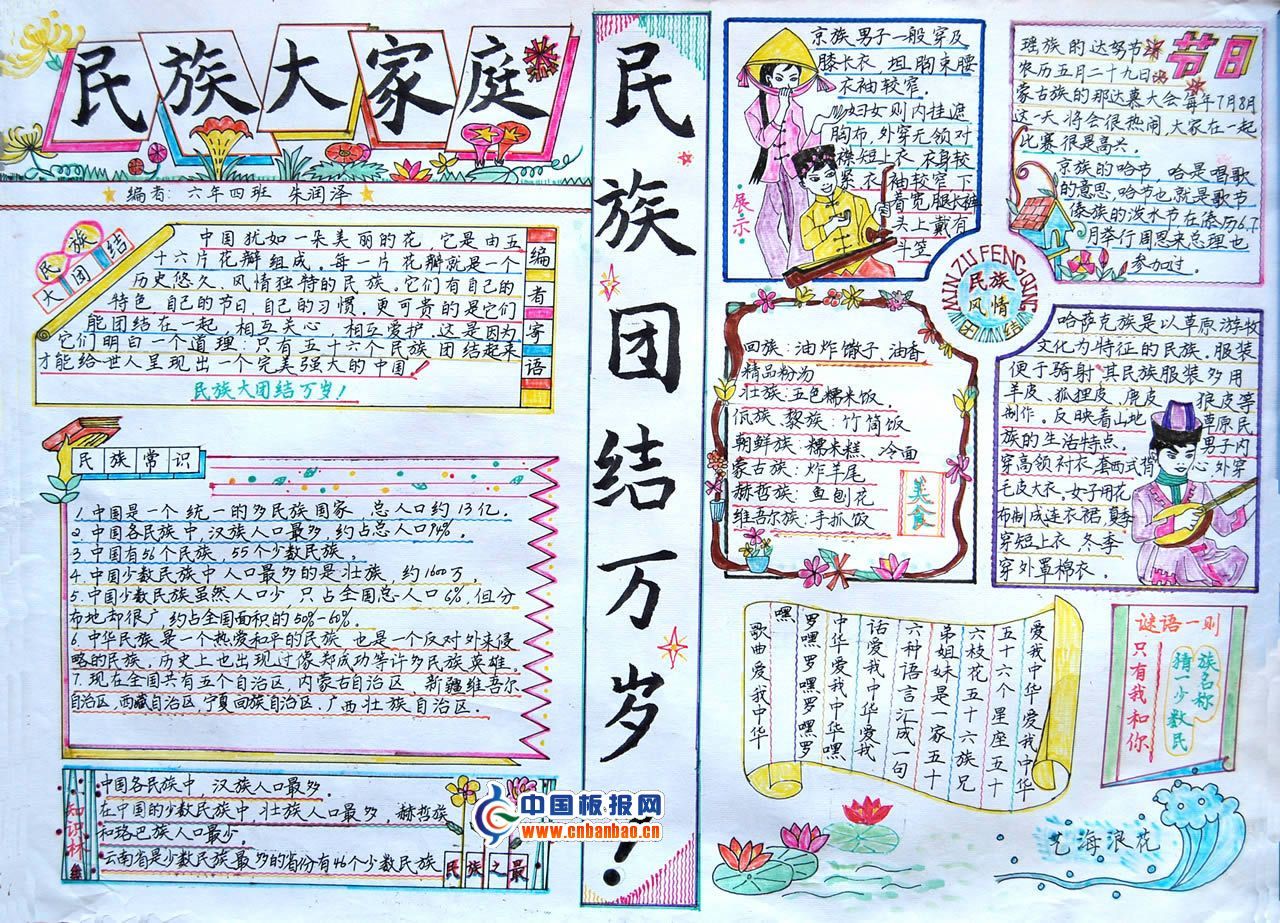 民族大家庭
编者：六年四班 朱润泽
民族
大团结
中国犹如一朵美丽的花，它是由五
十六片花瓣组成。每一片花瓣就是一个
历史悠久、风情独特的民族。它们有自己的
特色 自己的节日 自己的习惯。更可贵的是它们
能团结在一起，相互关心 相互爱护。这是因为
它们明白一个道理：只有五十六个民族 团结起来
才能给世人呈现出一个完美强大的中国！
民族大团结万岁！
编者寄语
民族常识
1.中国是一个统一的多民族国家，总人口约13亿。
2.中国各民族中，汉族人口最多，约占总人口94%。
3.中国有56个民族，55个少数民族。
4.中国少数民族中人口最多的是壮族，约1600万
5.中国少数民族虽然人口少，只占全国总人口6%，但分
布地却很广，约占全国面积的50%-60%。
6.中华民族是一个热爱和平的民族 也是一个反对外来侵
略的民族。历史上也出现过像郑成功等许多民族英雄。
7.现在全国共有五个自治区，内蒙古自治区，新疆维吾尔
自治区，西藏自治区，宁夏回族自治区，广西壮族自治区.
知识林
中国各民族中，汉族人口最多。
在中国的少数民族中，壮族人口最多，赫哲族
和珞巴族人口最少。
云南省是少数民族最多的省份有46个少数民族
民族之最
中国板报网
www.cnbanbao.cn
民族团结万岁！
京族男子一般穿及
膝长衣 坦胸束腰
衣袖较窄。
妇女则内挂遮
胸布，外穿无领对
襟短上衣，衣身较
紧 衣袖较窄 下
着宽腿长裤
头上戴有
斗笠
展示
节日
瑶族的达努节
农历五月二十九日
蒙古族的那达慕大会每年7月8月
这一天将会很热闹，大家在一起
比赛很是高兴。
京族的哈节，哈是唱歌
的意思，哈节也就是歌节
傣族的泼水节在傣历6.7
月举行周恩来总理也
参加过。
MIN ZU FENG QING
民族
风情
团结
回族：油炸馓子、油香
精品粉汤
壮族：五色糯米饭。
佤族、黎族：竹筒饭
朝鲜族：糯米糕、冷面
蒙古族：炸羊尾
赫哲族：鱼刨花
维吾尔族：手抓饭
美食
哈萨克族是以草原游牧
文化为特征的民族。服装
便于骑射 其民族服装多用
羊皮、狐狸皮、鹿皮 狼皮等
制作。反映着山地 草原民
族的生活特点。 男子内
穿高领衬衣 套西式背心 外穿
毛皮大衣。女子用花
布制成连衣裙，夏季
穿短上衣，冬季
穿外罩棉衣。
爱我中华爱我中华
五十六个星座五十
六枝花五十六族兄
弟姐妹是一家五十
六种语言汇成一句
话爱我中华爱我
中华爱我中华嘿
罗嘿罗嘿罗嘿罗
嘿
歌曲爱我中华
谜语一则
族名称
猜一少数民
只有我和你
艺海浪花